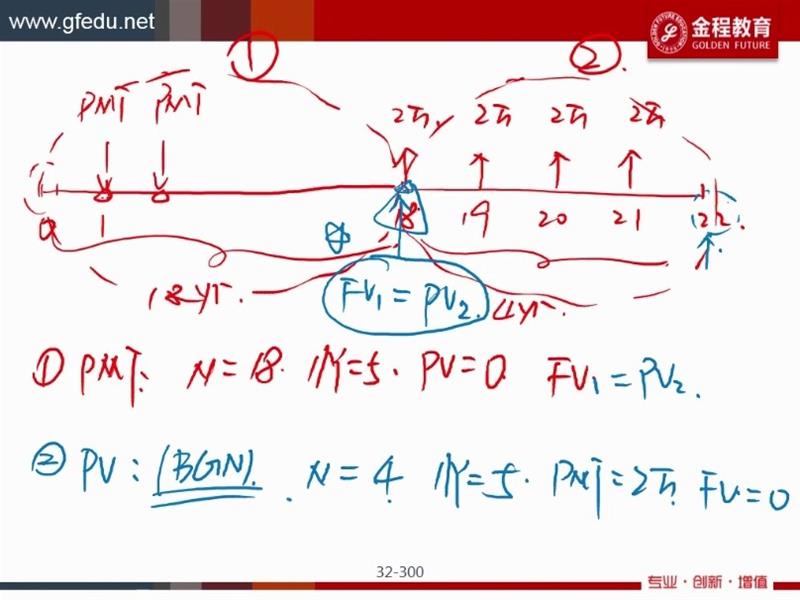 www.gfedu.net
金程教育
GOLDEN FUTURE
① ②
PMT PMT 2万 2万 2万 2万
0 1 18 19 20 21 22
18yr. 4yr.
FV₁ = PV₂
① PMT: N=18. I/Y=5. PV=0. FV₁=PV₂.
② PV: (BGN). N=4 I/Y=5. PMT=2万 FV=0
32-300
专业·创新·增值